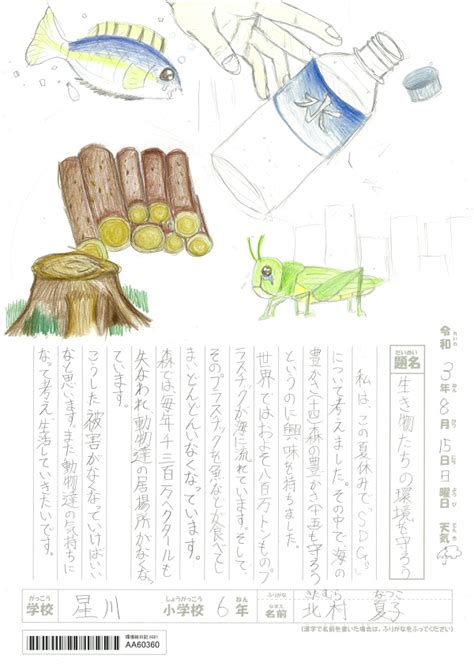 水
令和3年8月15日日曜日 天気
れいわ
ねん
がつ
にち
ようび
てんき
だいめい
題名
生き物たちの環境を守ろう
私は、この夏休みで、「SDGs」
について考えました。その中で「海の
豊かさ」「森の豊かさ
も守ろう」
というのに興味を持ちました。
世界ではおよそ八百万トンものプ
ラスチックが海に流れています。そして、
そのプラスチックを魚など
食べてし
まいどんどんいなくなっています。
森では毎年千三百万ヘクタールも
失なわれ動物達の居場所がなくな
っています。
こうした被害がなくなっていけばいい
なと思います。また動物達の気持ちに
なって考え生活していきたいです。
がっこう
学校
星川
しょうがっこう
小学校
6
ねん
年
ふりがな
きたむら
なつこ
なまえ
名前
北村
夏子
(漢字で名前を書いた場合は、ふりがなをふってください)
環境絵日記 2021
AA60360